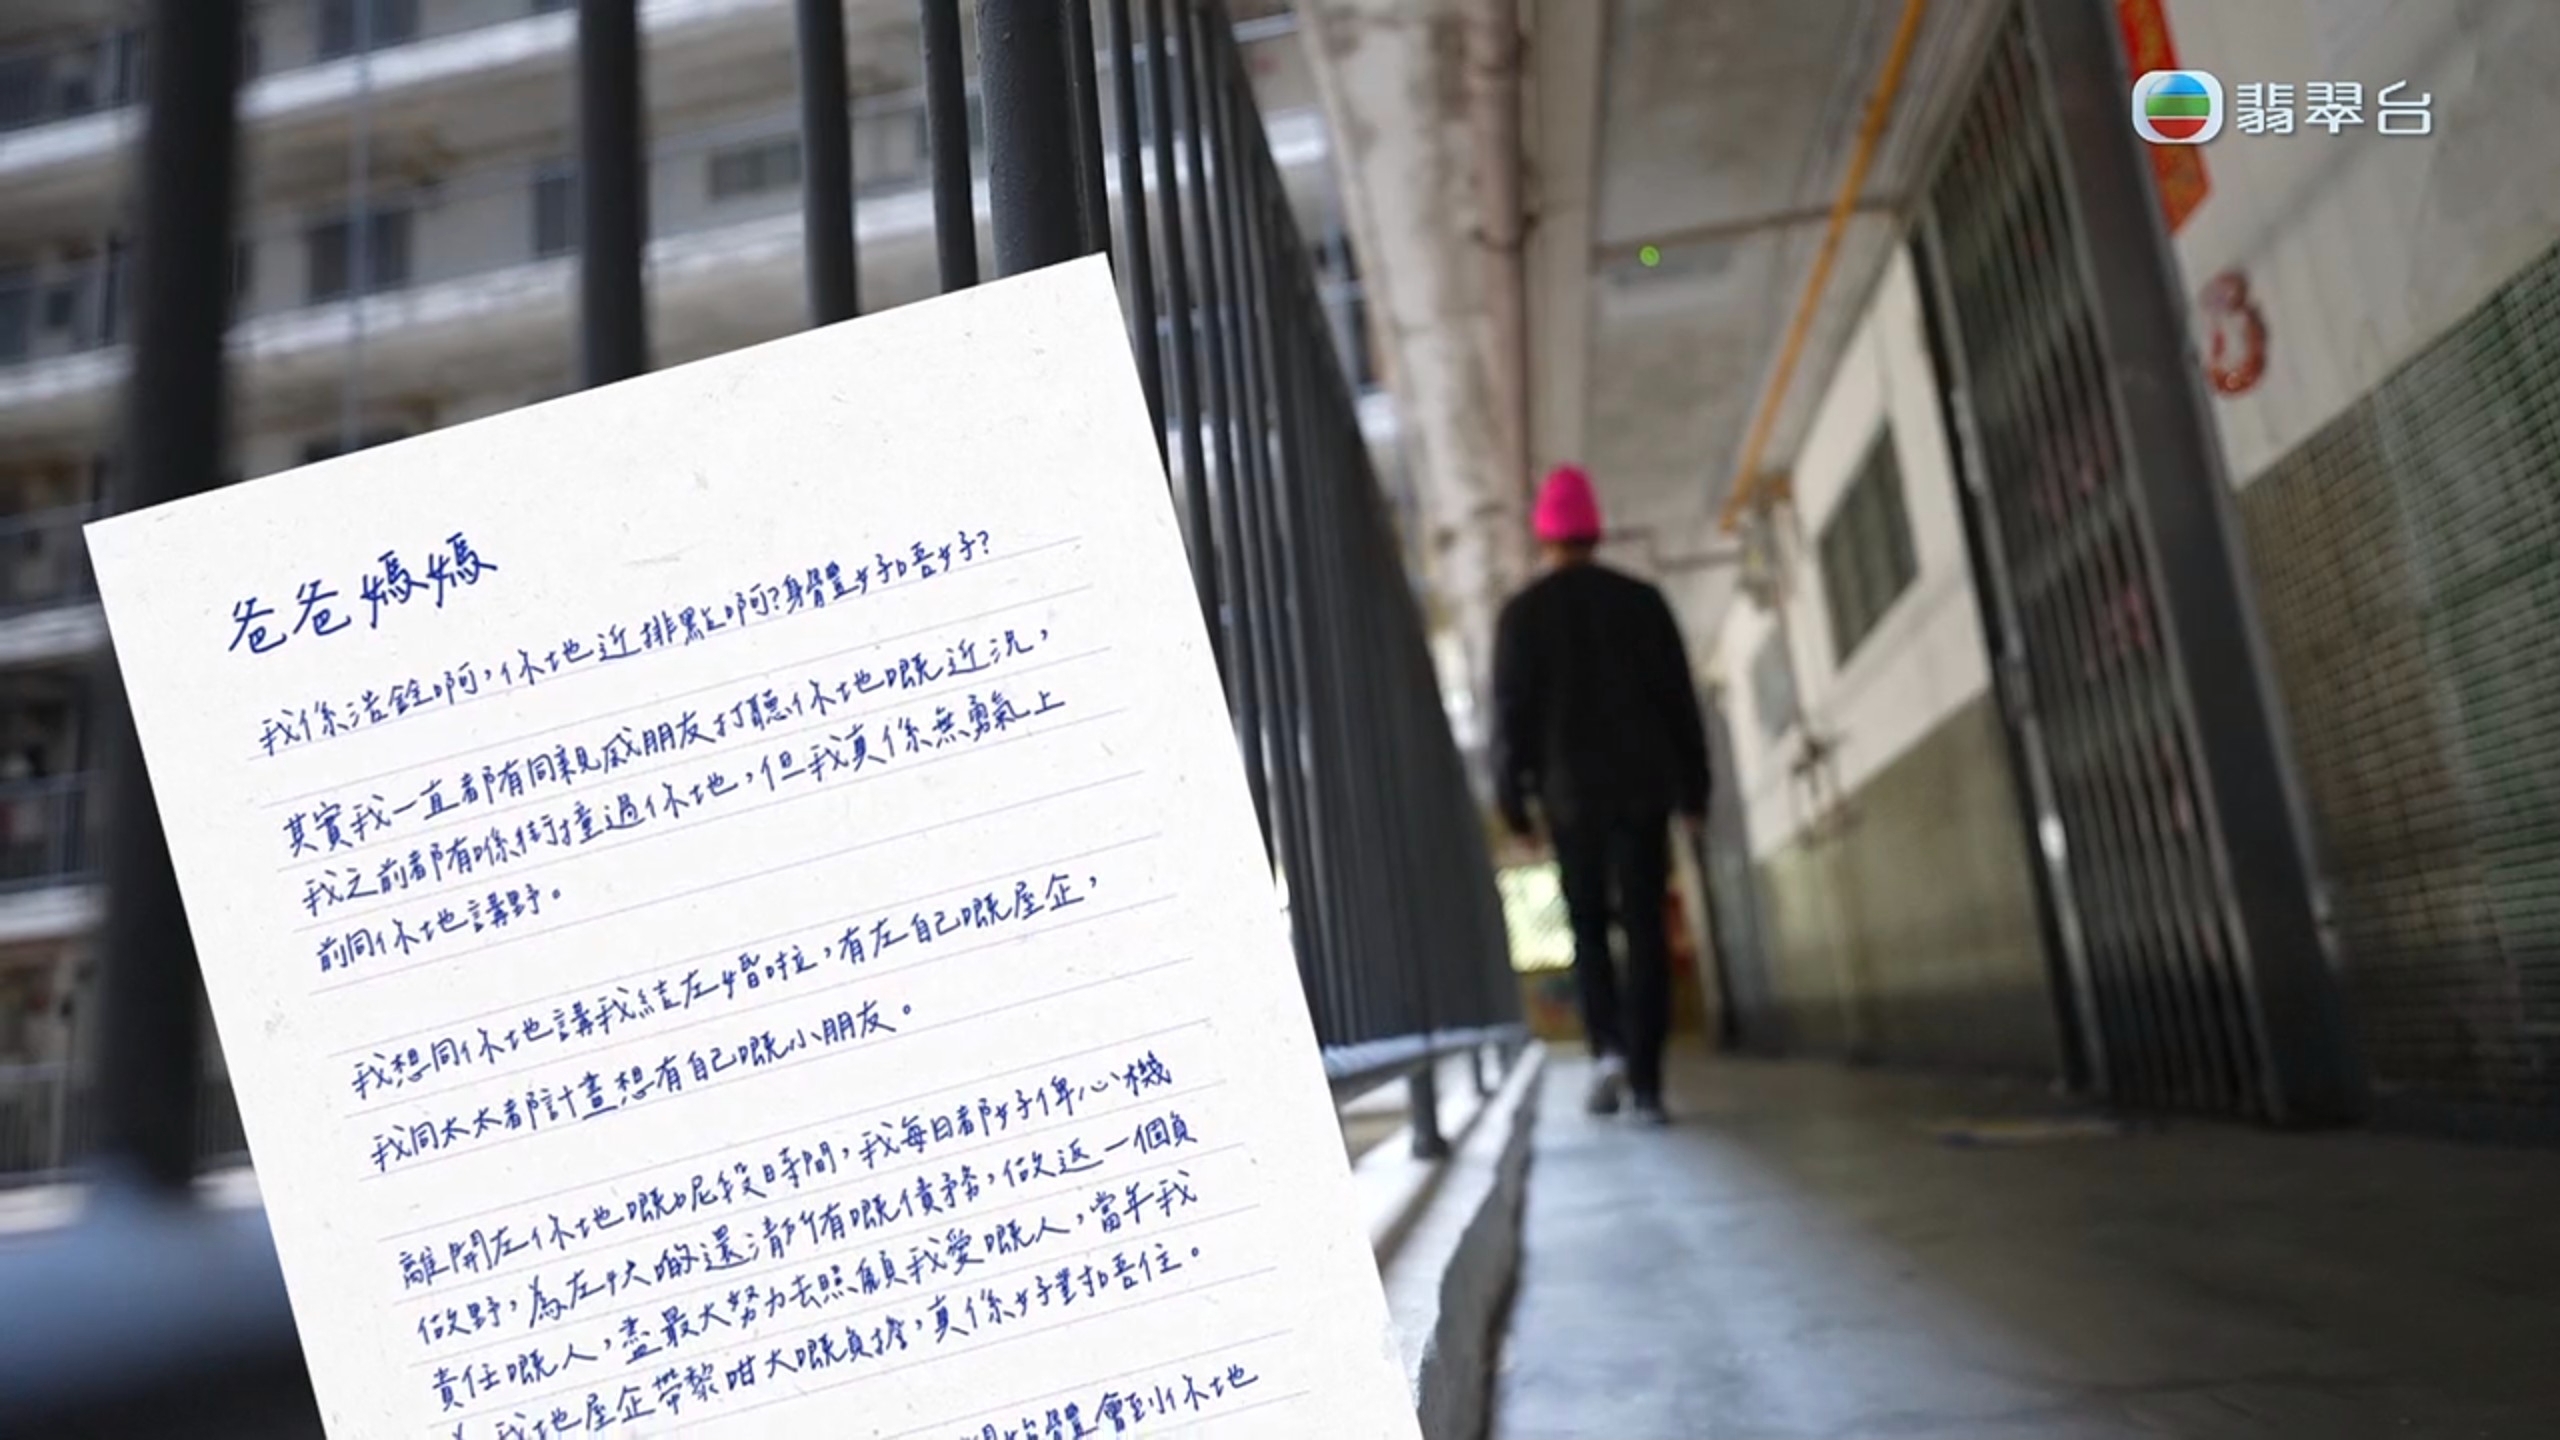 翡翠台
3
爸爸媽媽
我係浩銓啊，你地近排點啊？身體好唔好？
其實我一直都有同親戚朋友打聽你地嘅近況，
我之前都有喺街撞過你地，但我真係無勇氣上
前同你地講野。
我想同你地講我結左婚啦，有左自己嘅屋企，
我同太太都計畫想有自己嘅小朋友。
離開左你地嘅呢段日時間，我每日都好俾心機
做野，為左快啲還清所有嘅債務，做返一個負
責任嘅人，盡最大努力去照顧我愛嘅人，當年我
為我地屋企帶黎咁大嘅負擔，真係好對唔住。
體會到你地